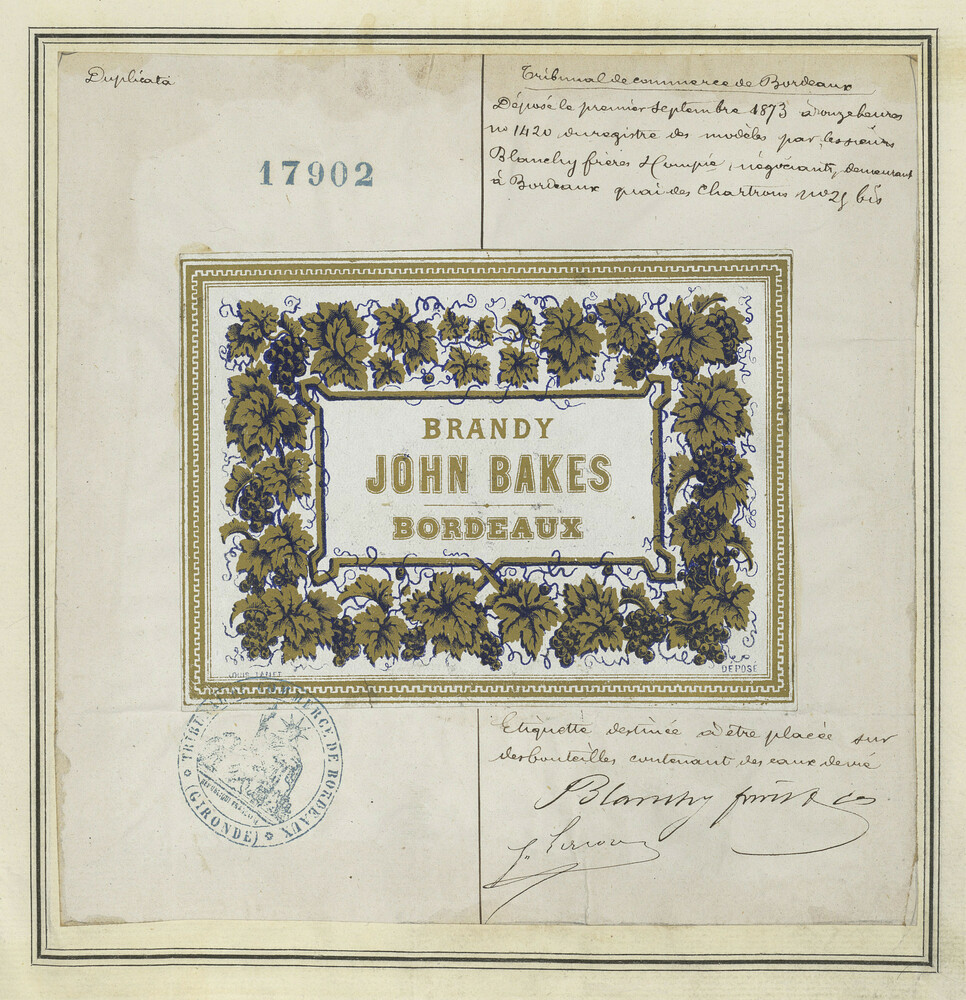 Duplicata
17902
Tribunal de commerce de Bordeaux
Déposé le premier Septembre 1873 à onze heures
no 1420 du registre des modèles par les sieurs
Blanchy frères & Compie, négociants, demeurant
à Bordeaux quai des Chartrons no bis
BRANDY
JOHN BAKES
BORDEAUX
DÉPOSÉ
Etiquette destinée à être placée sur
des bouteilles contenant des eaux de vie
Blanchy frères & Co
TRIBUNAL DE COMMERCE DE BORDEAUX
(GIRONDE)